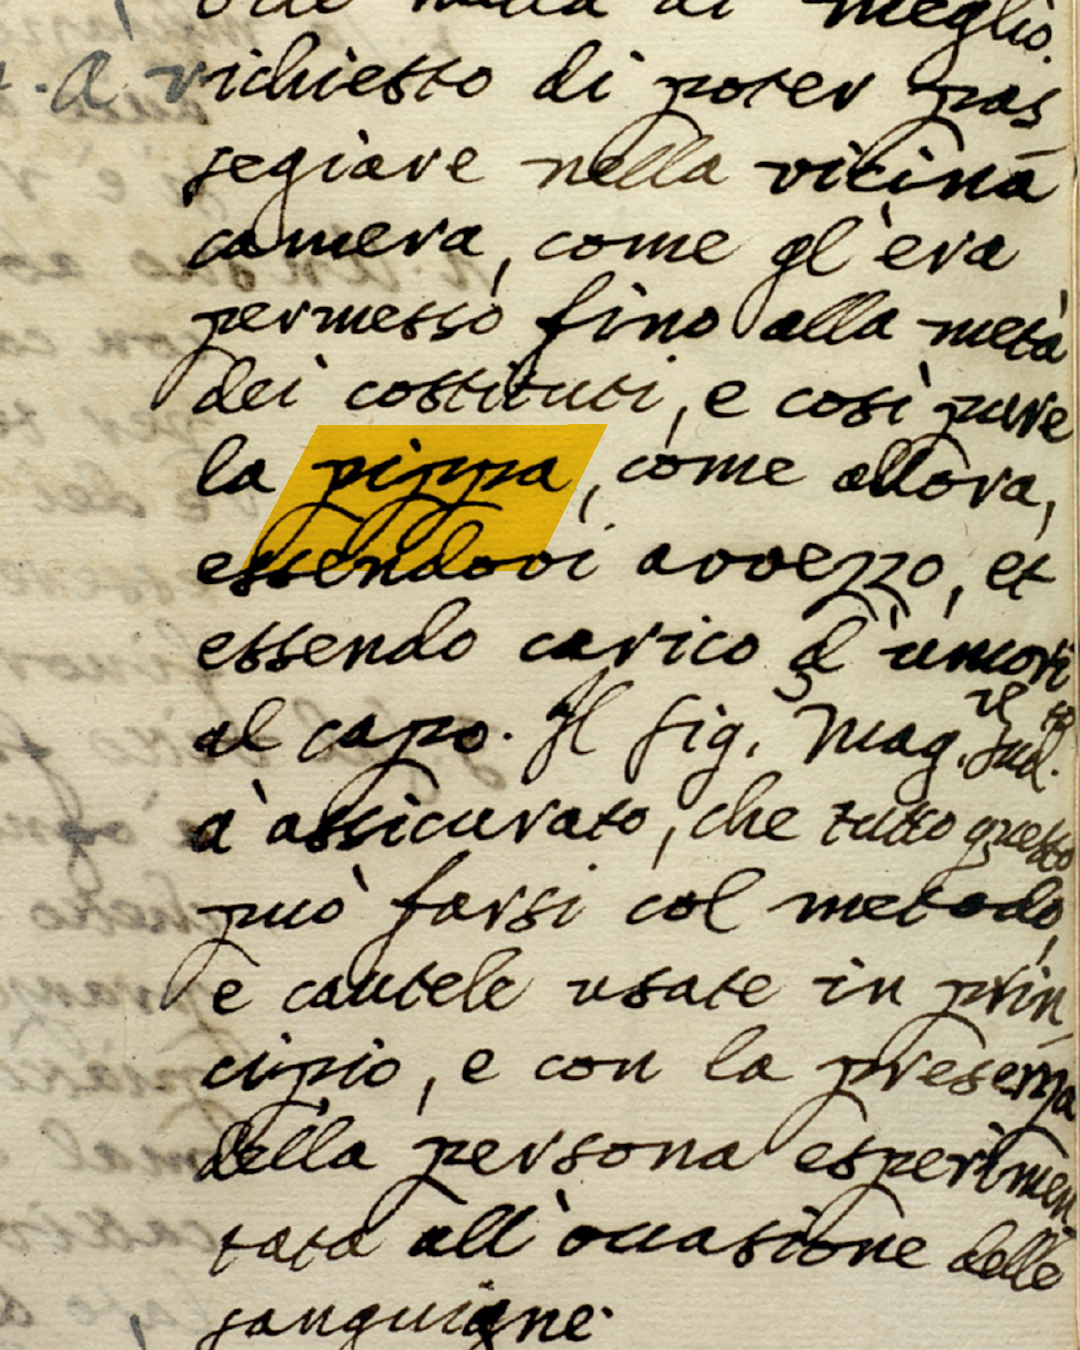 nulla di meglio.
A richiesto di poter pas
segiare nella vicina
camera, come gl'era
permesso fino alla metà
dei costituti, e così pure
la pippa, come allora,
essendovi avvezzo, et
essendo carico d'umori
al capo. Il sig. Mag.
à assicurato, che tutto questo
può farsi col metodo,
e cautele usate in prin
cipio, e con la presenza
della persona esperimen
tata all'occasione delle
sanguigne.